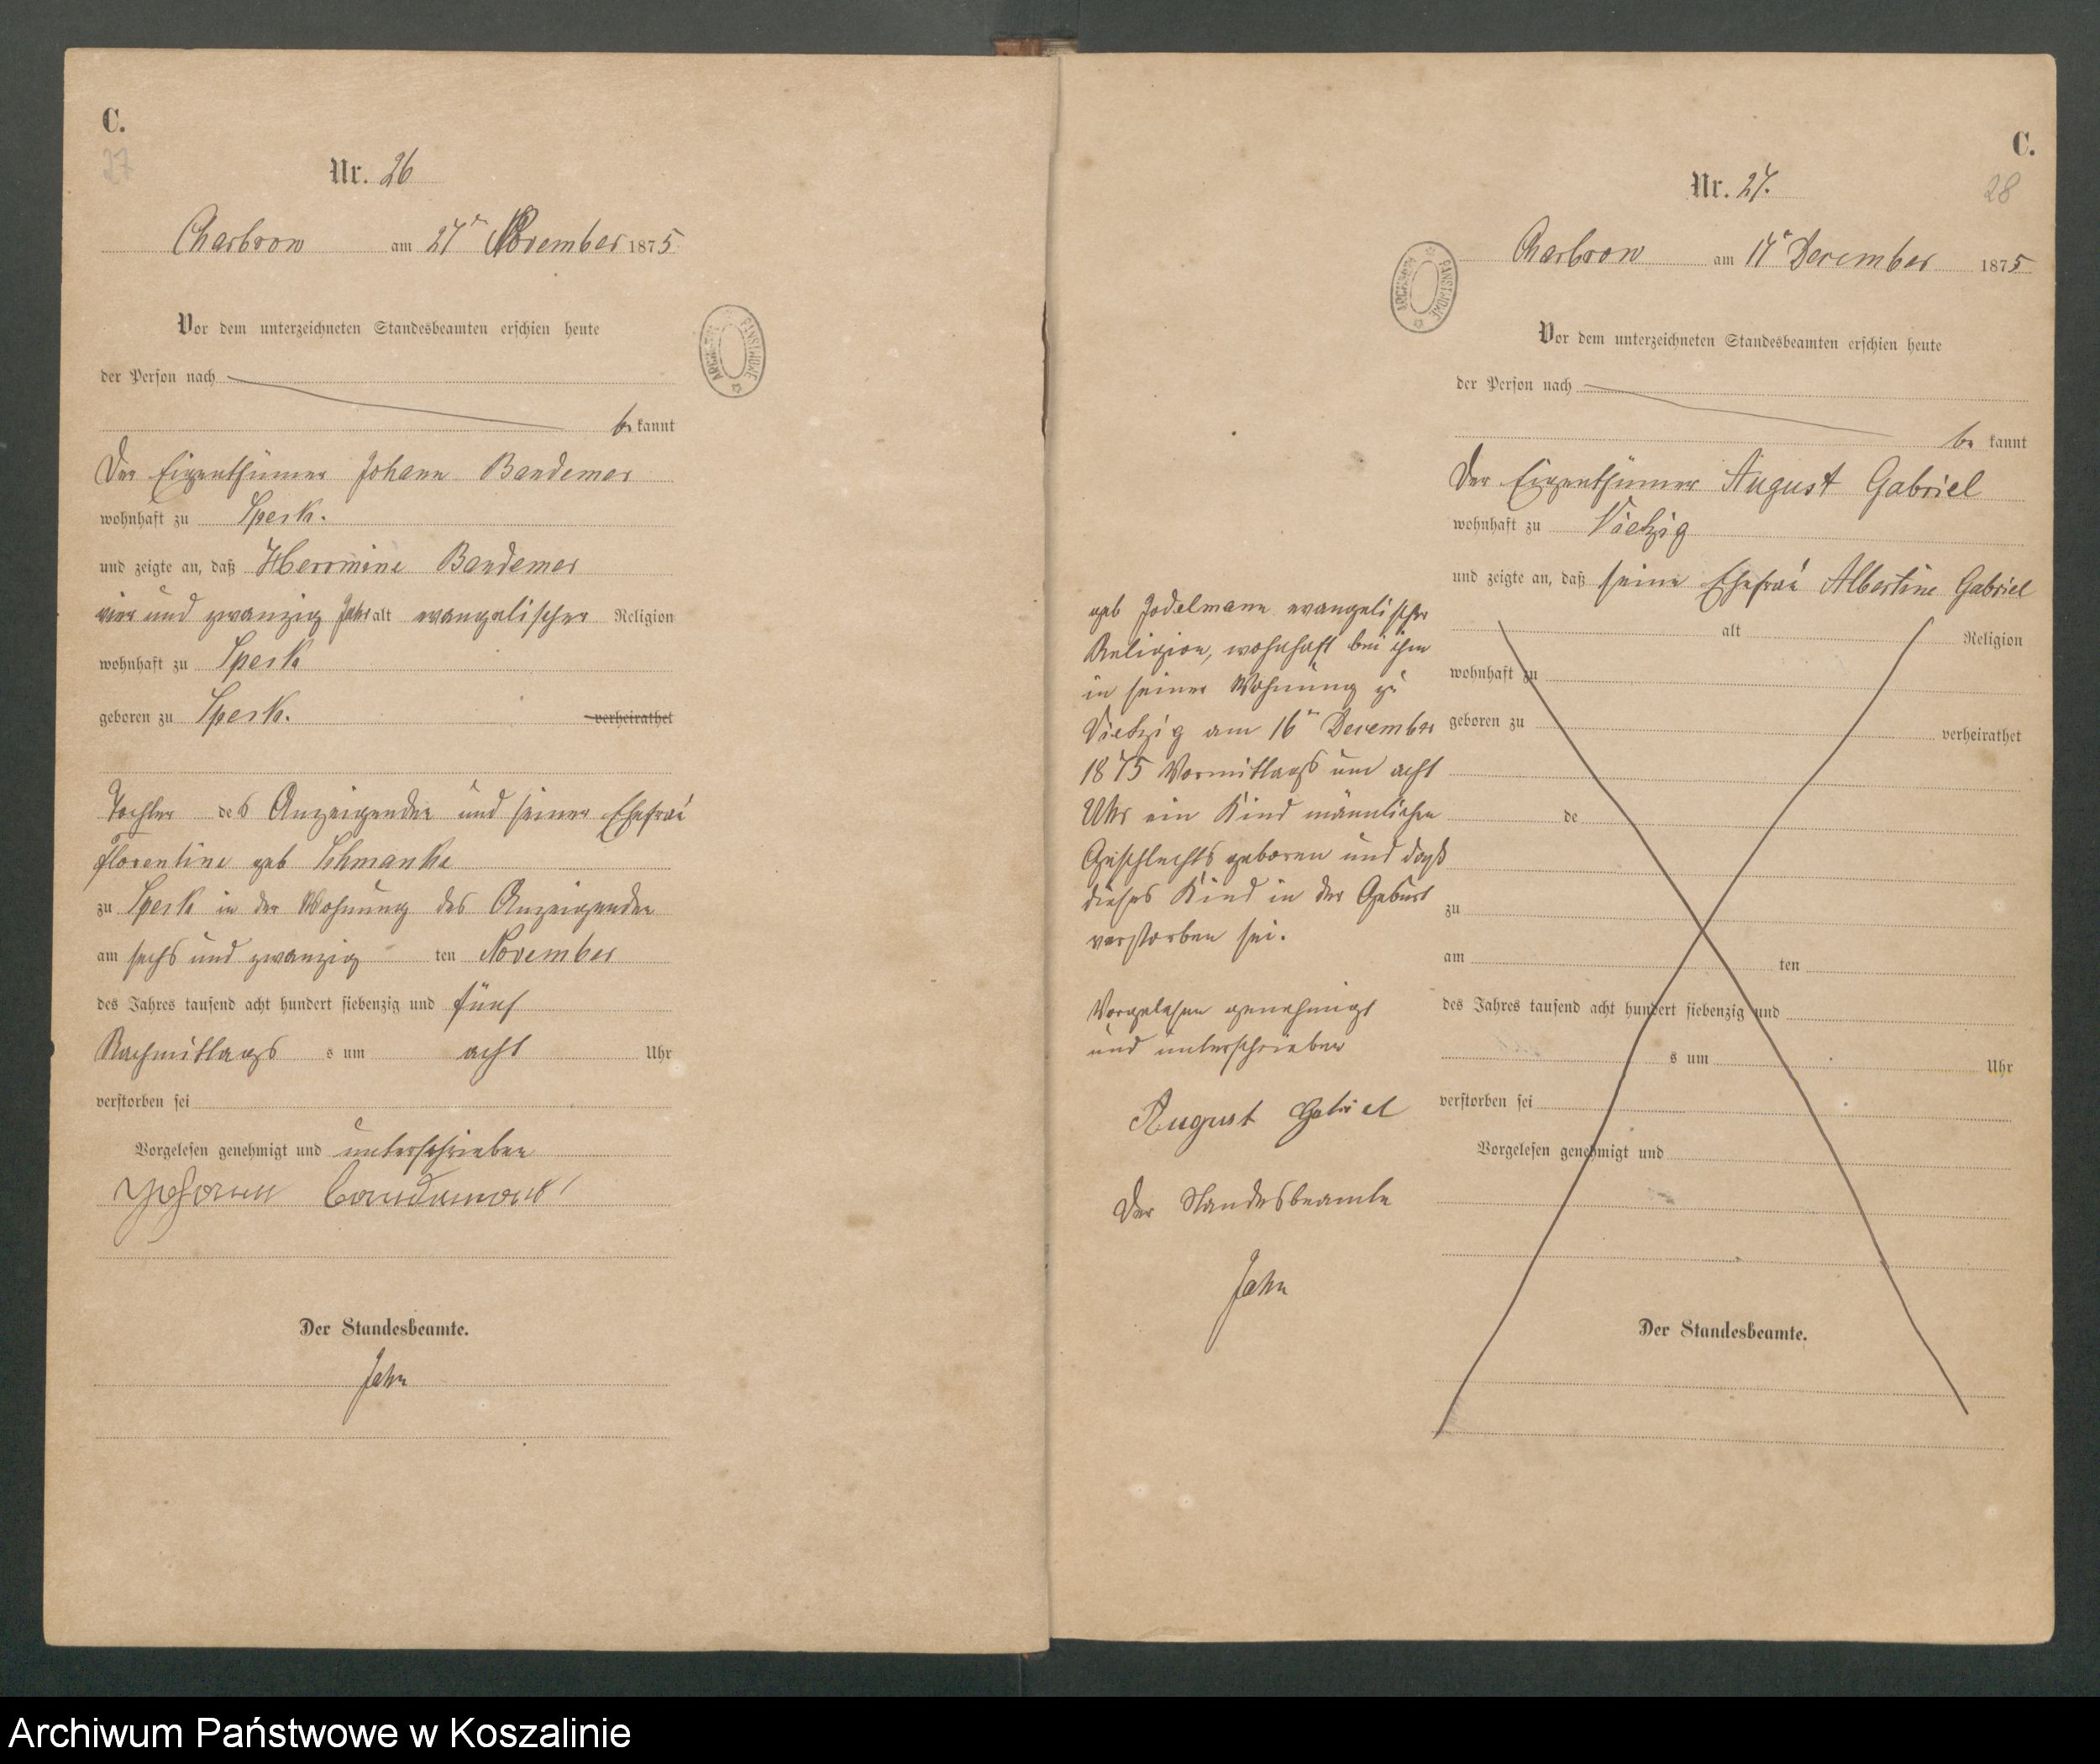 C.
27
Nr. 26
Charbrow am 27ᵗ November 1875
Vor dem unterzeichneten Standesbeamten erschien heute
der Person nach
be kannt
Der Eigenthümer Johann Bandemer
wohnhaft zu Speck.
und zeigte an, daß Herrmine Bandemer
vier und zwanzig Jahr alt evangelischer Religion
wohnhaft zu Speck
geboren zu Speck. verheirathet
Tochter des Anzeigenden und seiner Ehefrau
Florentine geb Schmanke
zu Speck in der Wohnung des Anzeigenden
am sechs und zwanzig ten November
des Jahres tausend acht hundert siebenzig und fünf
Nachmittags s um acht Uhr
verstorben sei
Vorgelesen genehmigt und unterschrieben
Johann
Der Standesbeamte.
Jahn
C.
28
Nr. 27.
Charbrow am 17ᵗ December 1875
Vor dem unterzeichneten Standesbeamten erschien heute
der Person nach
be kannt
Der Eigenthümer August Gabriel
wohnhaft zu Vietzig
und zeigte an, daß seine Ehefrau Albertine Gabriel
geb Jodelmann evangelischer
Religion, wohnhaft bei ihm
in seiner Wohnung zu
Vietzig am 16ᵗ December
1875 Vormittags um acht
Uhr ein Kind männlichen
Geschlechts geboren und daß
dieses Kind in der Geburt
verstorben sei.
Vorgelesen genehmigt
und unterschrieben
August Gabriel
Der Standesbeamte
Jahn
alt Religion
wohnhaft zu
geboren zu verheirathet
de
zu
am ten
des Jahres tausend acht hundert siebenzig und
s um Uhr
verstorben sei
Vorgelesen genehmigt und
Der Standesbeamte.
ARCHIWUM PAŃSTWOWE
ARCHIWUM PAŃSTWOWE
Archiwum Państwowe w Koszalinie